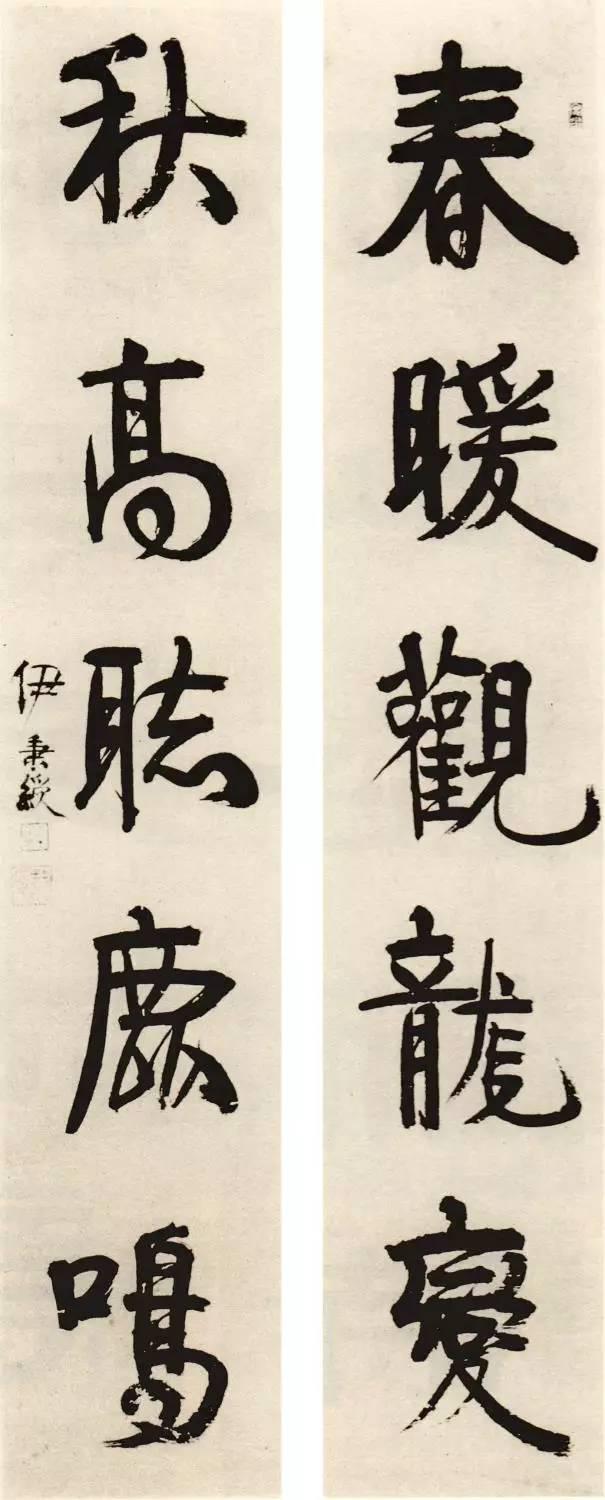 春暖觀龍變
秋高聽鹿鳴
伊秉綬